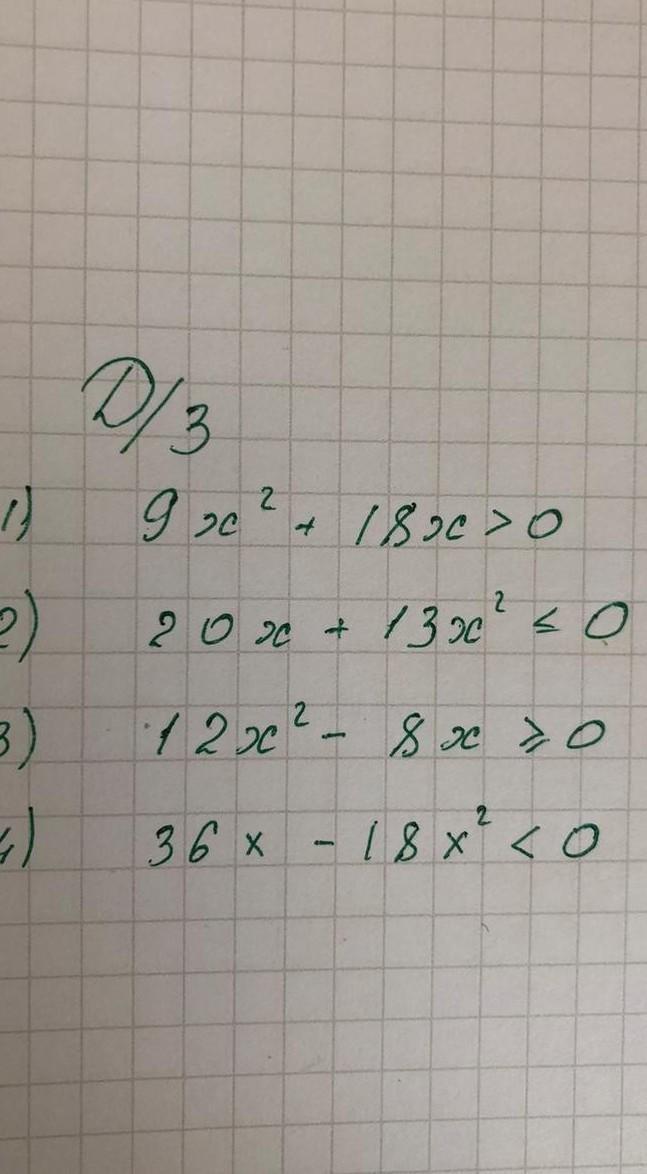 Д/З
1) 9x² + 18x > 0
2) 20x + 13x² ≤ 0
3) 12x² - 8x ≥ 0
4) 36x - 18x² < 0